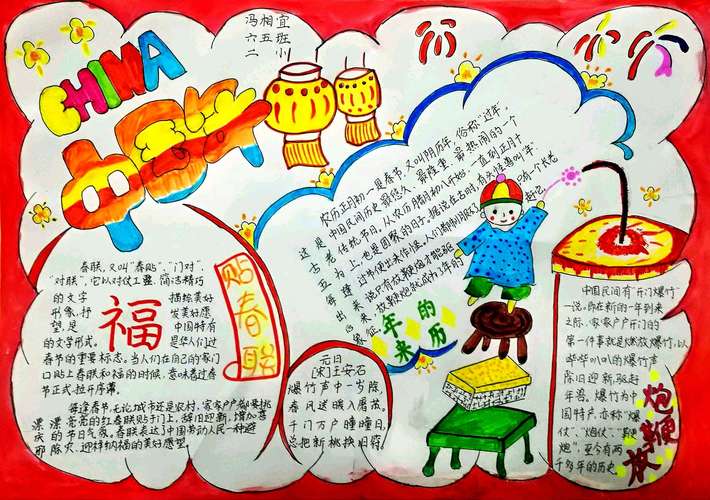 CHINA
中国年
冯相宜
六五班
二小
春联,又叫"春贴"、"门对"、
"对联",它以对仗工整、简洁精巧
的文字 描绘美好
形象,抒 发美好愿
望,是 中国特有
的文学形式。 是华人们过
春节的重要标志。当人们在自己的家门
口贴上春联和福的时候,意味着过春
节正式拉开序幕。
每逢春节,无论城市还是农村,家家户户都要挑
漂漂亮亮的红春联贴于门上,辞旧迎新,增加喜
庆的节日气氛。春联表达了中国劳动人民一种避
邪除灾、迎祥纳福的美好愿望。
福
贴春联
农历正月初一是春节,又叫阴历年,俗称"过年",
这是中国民间历史最悠久、最隆重、最热闹的一个
古老传统节日,从农历腊月初八开始,一直到正月十
五为上,也是团聚的日子。据说在古时,有头怪兽叫年
每逢过节便出来作怪,人们都 只有一个长老
出来,说只有放鞭炮才能驱 赶
放鞭炮就成为了年的
象征。
年的
来历
元日
[宋]王安石
爆竹声中一岁除
春风送暖入屠苏。
千门万户瞳瞳日,
总把新桃换旧符。
中国民间有"开门爆竹"
一说。即在新的一年到来
之际,家家户户开门的
第一件事就是燃放爆竹,以
哔哔叭叭的爆竹声
除旧迎新,驱赶
年兽。爆竹为中
国特产,亦称"爆
仗"、"炮仗"、"鞭
炮",至今有两
千多年的历史。
放鞭炮